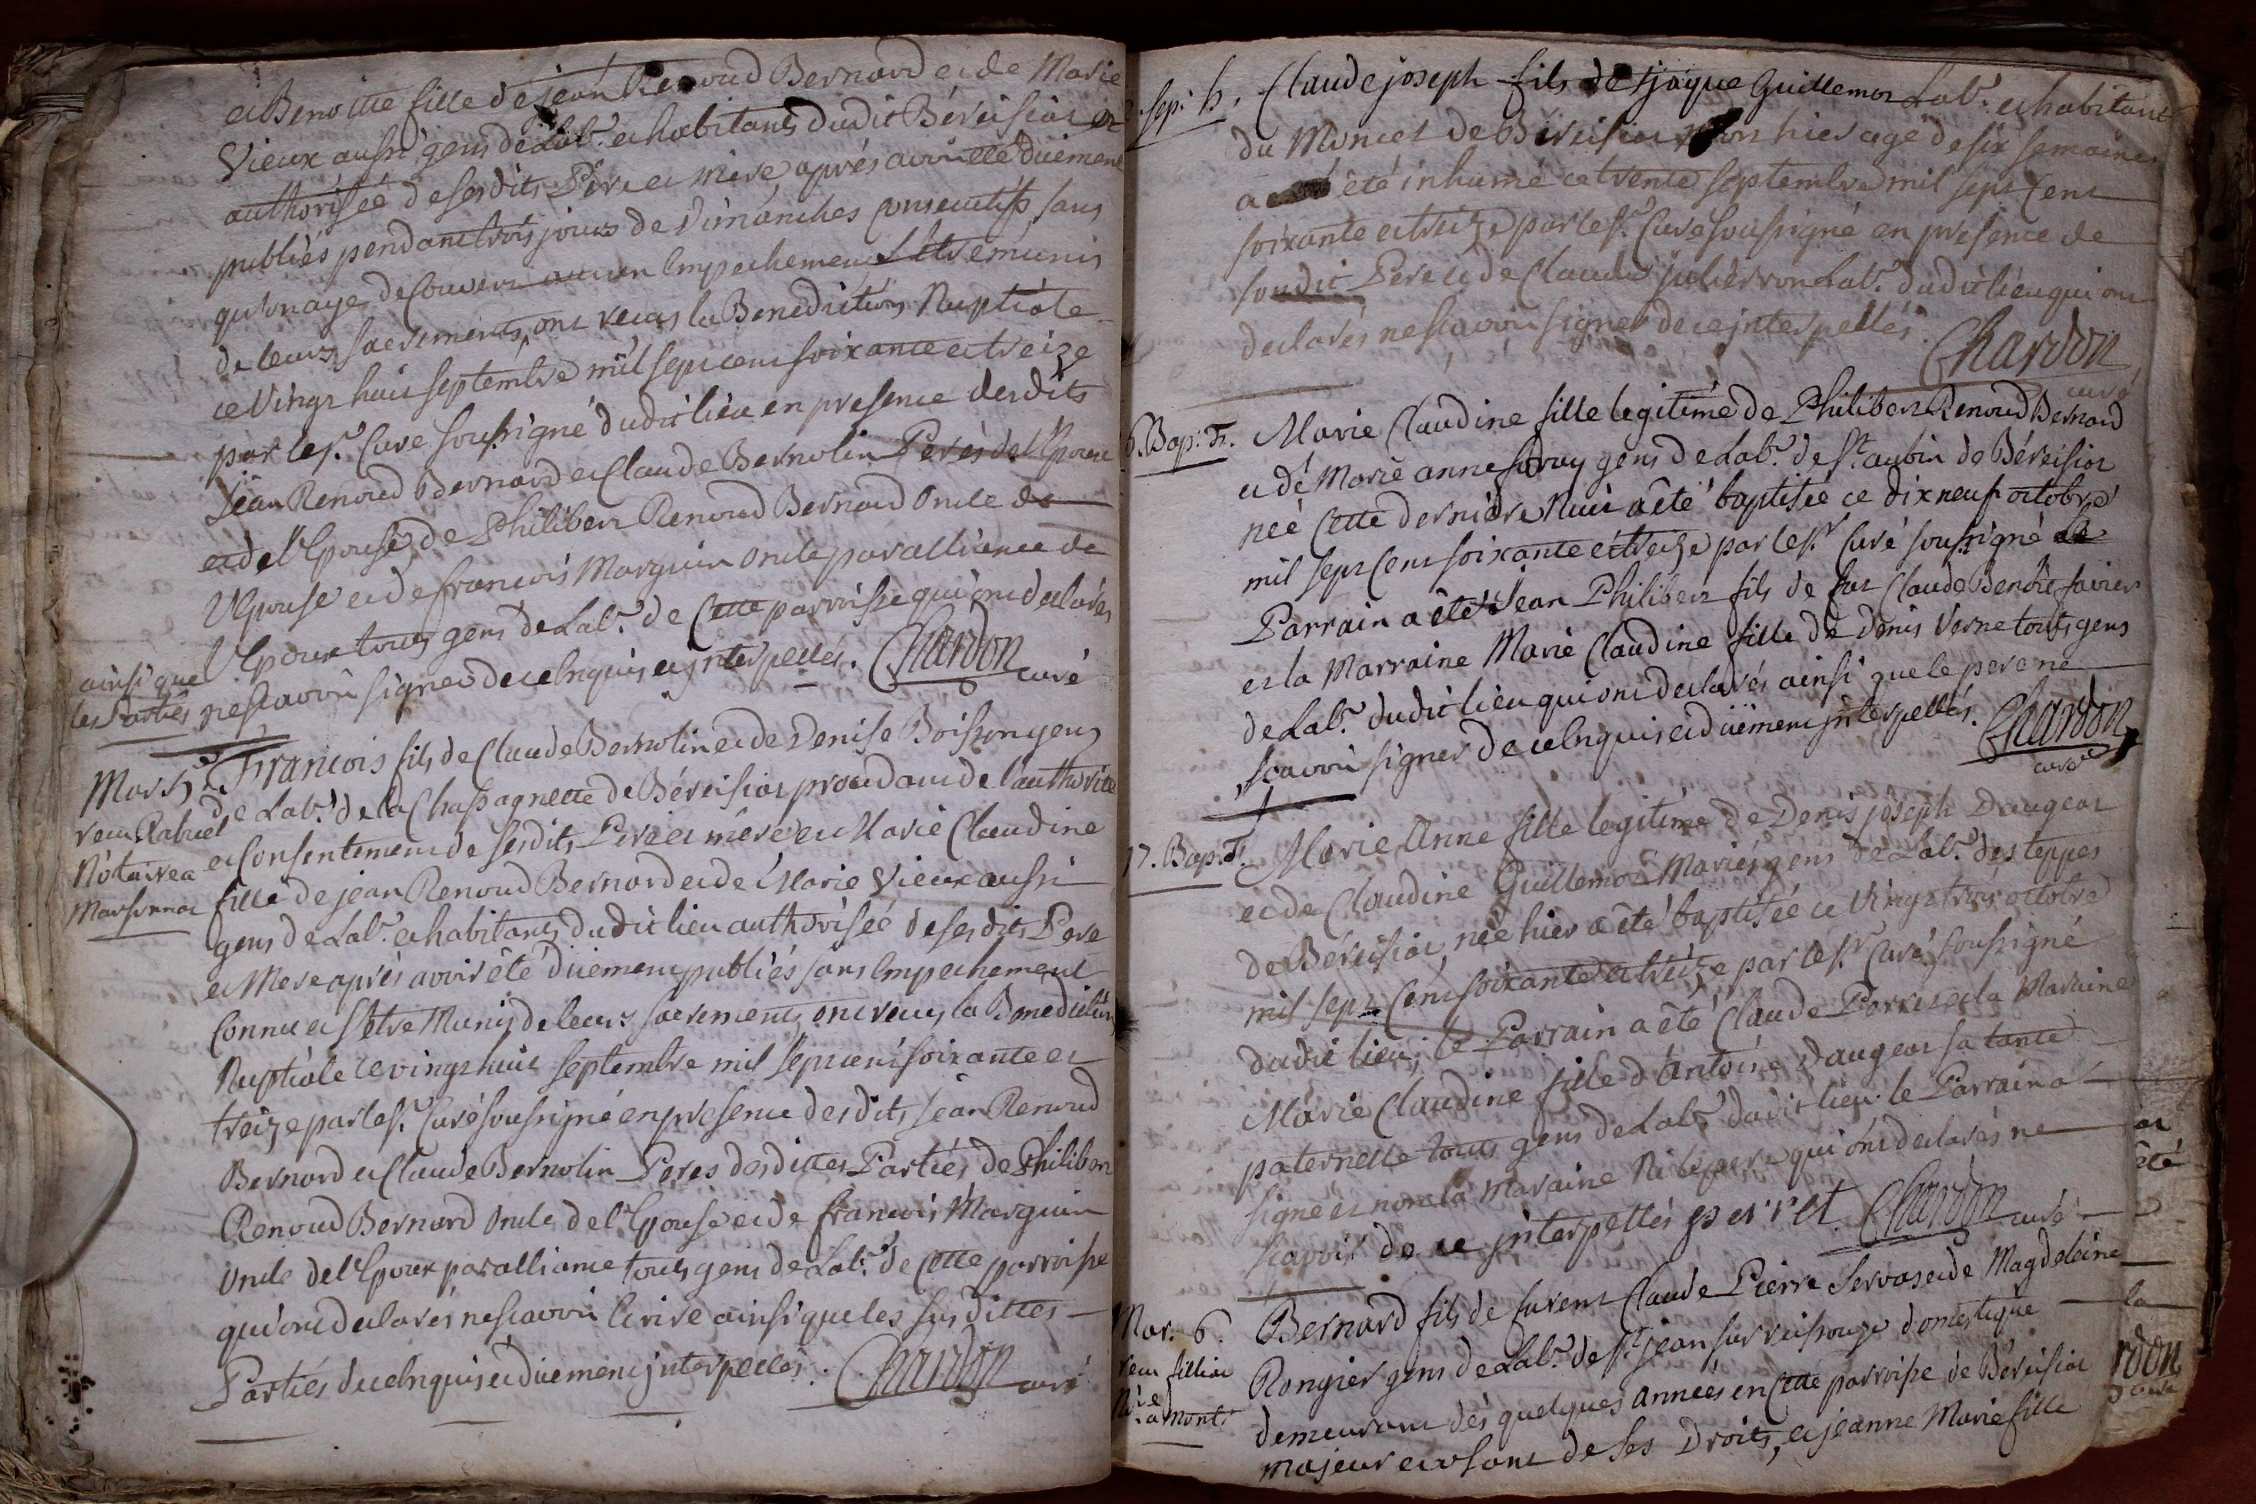 et Benoitte fille de jean Renoud Bernard et de Marie
Vieux aussi gens de Lab.r et habitants dudit Béreisiat et
authorisée de sesdits Pere et mere, aprés avoir été düement
publiés pendant trois jours de Dimanches Consecutifs sans
qu'on aye decouvert aucun Empechement S'etre munis
de leurs sacrements, ont recus la Benediction Nuptiale
ce Vingt huit septembre mil sept cent soixante et treize
par le S.r Curé soussigné dudit lieu en presence desdits
Jean Renoud Bernard et Claude Bernolin Peres de l'Epoux
et de l'Epouse, de Philibert Renoud Bernard Oncle de
l'Epouse et de francois Marguin Oncle par alliance de
l'Epoux tous gens de Lab.r de Cette parroisse qui ont declarés
ainsi que
les Parties
ne scavoir signer de ce Enquis et interpellés. Chardon curé
Mar. 5.e
recu Rabuel
Notaire a
Marsonnat
Francois fils de Claude Bernolin et de Denise Boisson gens
de Lab.r de la Chassagnette de Béreisiat procedant de l'authorité
et Consentement de sesdits Pere et mere et Marie Claudine
fille de jean Renoud Bernard et de Marie Vieux aussi
gens de Lab.r et habitants dudit lieu authorisée de sesdits Pere
et Mere aprés avoir été düement publiés sans Empechement
Connu et s'etre Munis de leurs sacrements, ont recus la Benediction
Nuptiale ce vingt huit septembre mil sept cent soixante et
treize par le S.r Curé soussigné en presence desdits jean Renoud
Bernard et Claude Bernolin Peres desdittes Parties, de Philibert
Renoud Bernard Oncle de l'Epouse et de francois Marguin
Oncle de l'Epoux par alliance tous gens de Lab.r de Cette parroisse
qui ont declarés ne scavoir Ecrire ainsi que les susdittes
Parties de ce Enquis et düement interpellés. Chardon curé
sep: h.
Claude joseph fils de jaque Guillemot Lab.r et habitant
du Moncet de Béreisiat mort hier agé de six semaines
a été inhumé ce trente septembre mil sept Cent
soixante et treize par le S.r Curé soussigné en presence de
sondit Pere et de Claude Lab.r dudit lieu qui ont
declarés ne scavoir signer de ce interpellés
Chardon
curé
6. Bap: F.
Marie Claudine fille legitime de Philibert Renoud Bernard
et de Marie anne gens de Lab.r de S.t aubin de Béreisiat
née Cette derniére Nuit a été baptisée ce dix neuf octobre
mil sept Cent soixante et treize par le S.r Curé soussigné le
Parrain a été Jean Philibert fils de fut Claude Benoit favier
et la Marraine Marie Claudine fille de Denis Verne touts gens
de Lab.r dudit lieu qui ont declarés ainsi que le pere ne
scavoir signer de ce Enquis et düement interpellés. Chardon
curé
17. Bap: F.
Marie Anne fille legitime de Denis joseph Daugeat
et de Claudine Guillemot Mariés gens de Lab.r des teppes
de Béreisiat, née hier a été baptisée ce Vingt trois octobre
mil sept Cent soixante et treize par le S.r Curé soussigné
dudit lieu; le Parrain a été Claude Perret et la Maraine
Marie Claudine fille d'Antoine Daugeat sa tante
paternelle tous gens de Lab.r dudit lieu le Parrain a
signé et non la Maraine Ni le pere qui ont declarés ne
scavoir de ce interpellés Chardon curé
Mar. 6.
recu
Bernard fils de furent Claude Pierre Servas et de Magdeleine
Rongier gens de Lab.r de S.t jean sur reissouze domestique
demeurant dés quelques années en Cette parroisse de Béreisiat
majeur et usant de ses Droits, et jeanne Marie fille
at
été
la
rdon
curé